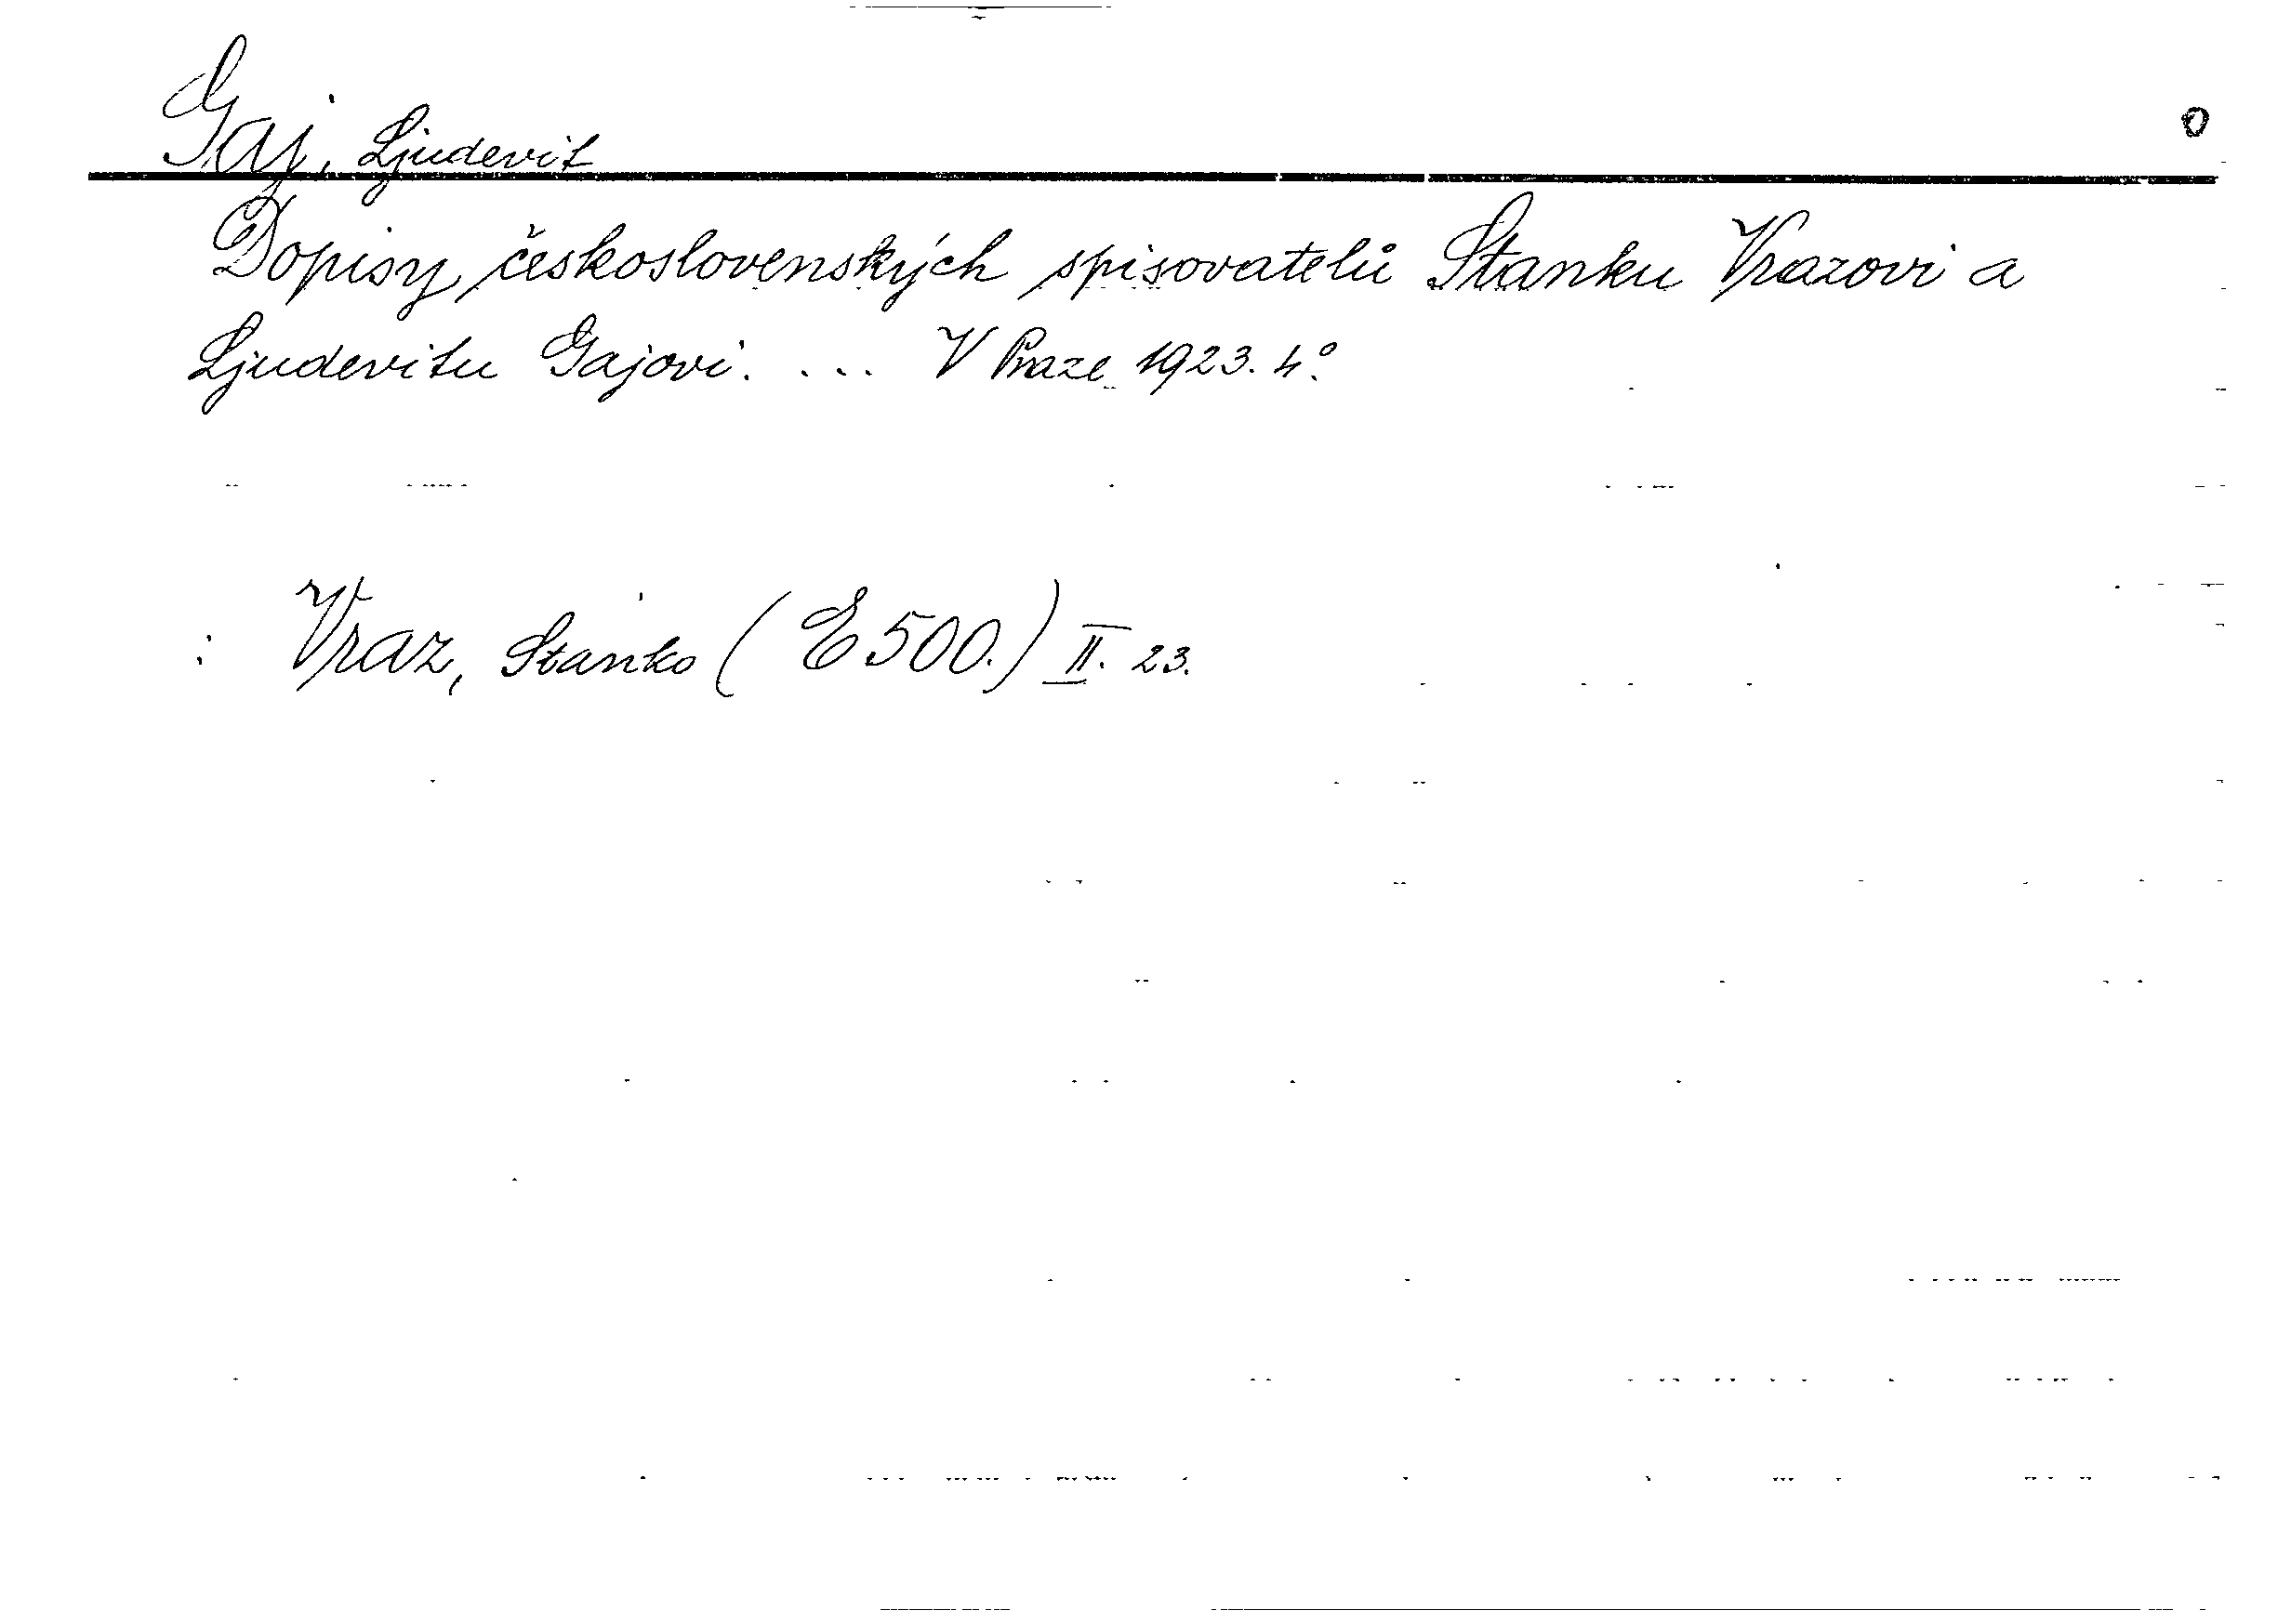 Gaj, Ljudevit
0
Dopisy československých spisovatelů Stanku Vrazovi a
Ljudevitu Gajovi. ... V Praze 1923. 4°.
: Vraz, Stanko (E 500.) II. 23.